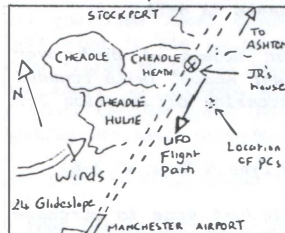 STOCKPORT
TO
ASHTON
CHEADLE
CHEADLE
HEATH
JR's
house
N
CHEADLE
HULME
UFO
Flight
Path
Location
OF PCs
Winds
24 Glideslope
MANCHESTER AIRPORT